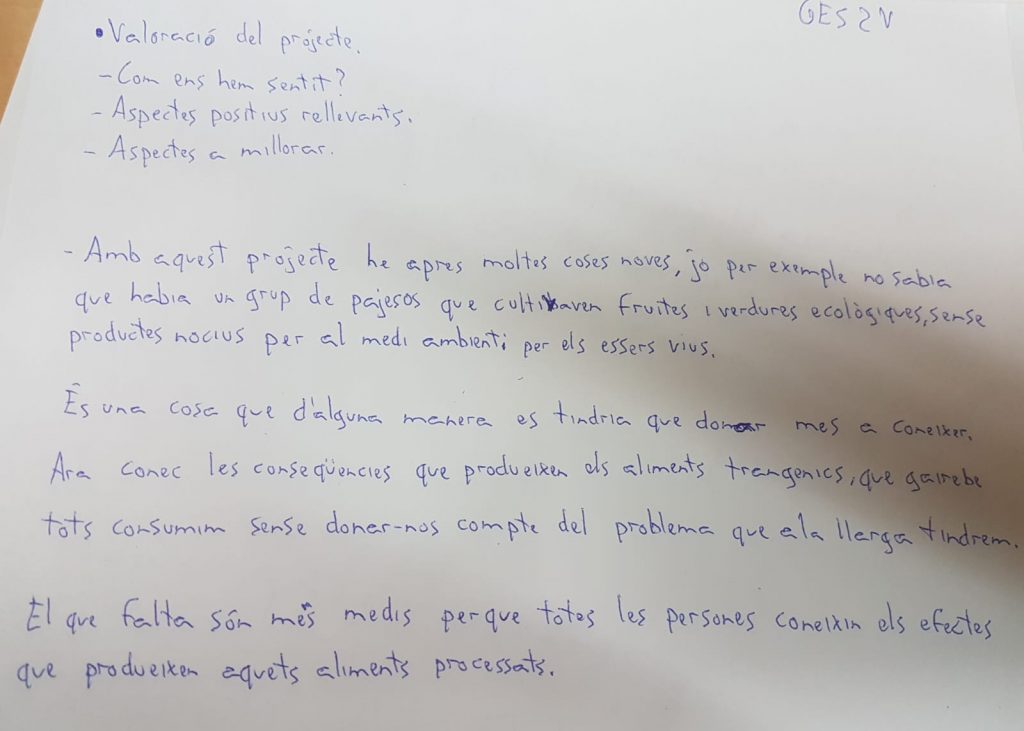 GES 2 N
• Valoració del projecte.
- Com ens hem sentit?
- Aspectes positius rellevants.
- Aspectes a millorar.
- Amb aquest projecte he apres moltes coses noves, jo per exemple no sabia
que habia un grup de pajesos que cultivaven fruites i verdures ecològiques, sense
productes nocius per al medi ambient i per els essers vius.
És una cosa que d'alguna manera es tindria que donar mes a coneixer.
Ara conec les conseqüencies que produeixen els aliments trangenics, que gairebe
tots consumim sense donar-nos compte del problema que a la llarga tindrem.
El que falta són més medis perque totes les persones coneixin els efectes
que produeixen aquets aliments processats.